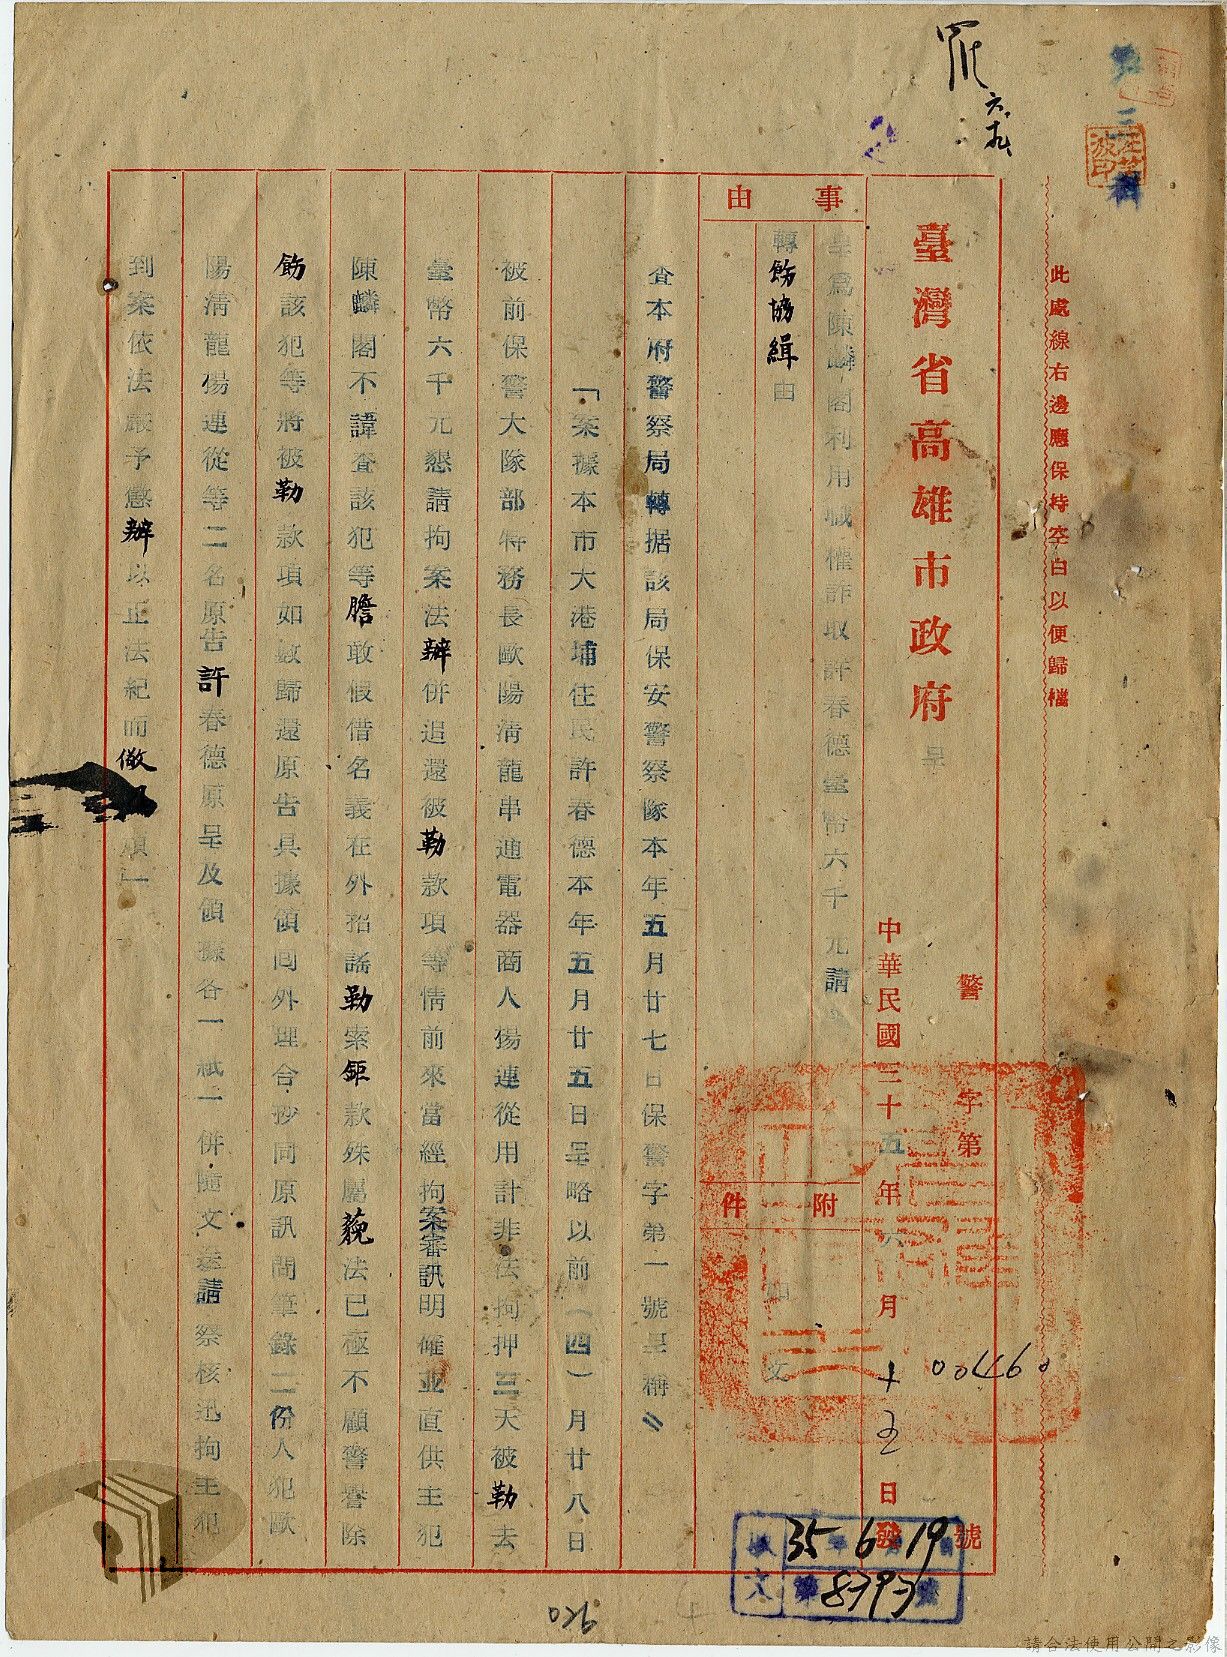 此處線右邊應保持空白以便歸檔
臺灣省高雄市政府 呈
警字第00460號
中華民國三十五年六月十五日發
事由
呈為陳麟閣利用職權詐取許春德臺幣六千元請
轉飭協緝由
附件
如文
查本府警察局轉据該局保安警察隊本年五月廿七日保警字第一號呈稱〃
「案據本市大港埔住民許春德本年五月廿五日呈略以前(四)月廿八日
被前保警大隊部特務長歐陽清龍串通電器商人楊連從用計非法拘押三天被勒去
臺幣六千元懇請拘案法辦併追還被勒款項等情前來當經拘案審訊明確並直供主犯
陳麟閣不諱查該犯等膽敢假借名義在外招謠勒索鉅款殊屬藐法已極不顧警譽除
飭該犯等將被勒款項如數歸還原告具據領囘外理合抄同原訊問筆錄二份人犯歐
陽清龍楊連從等二名原告許春德原呈及領據各一紙一併隨文送請察核迅拘主犯
到案依法嚴予懲辦以正法紀而儆
收文 35年6月19日
第8393號
026
請合法使用公開之影像